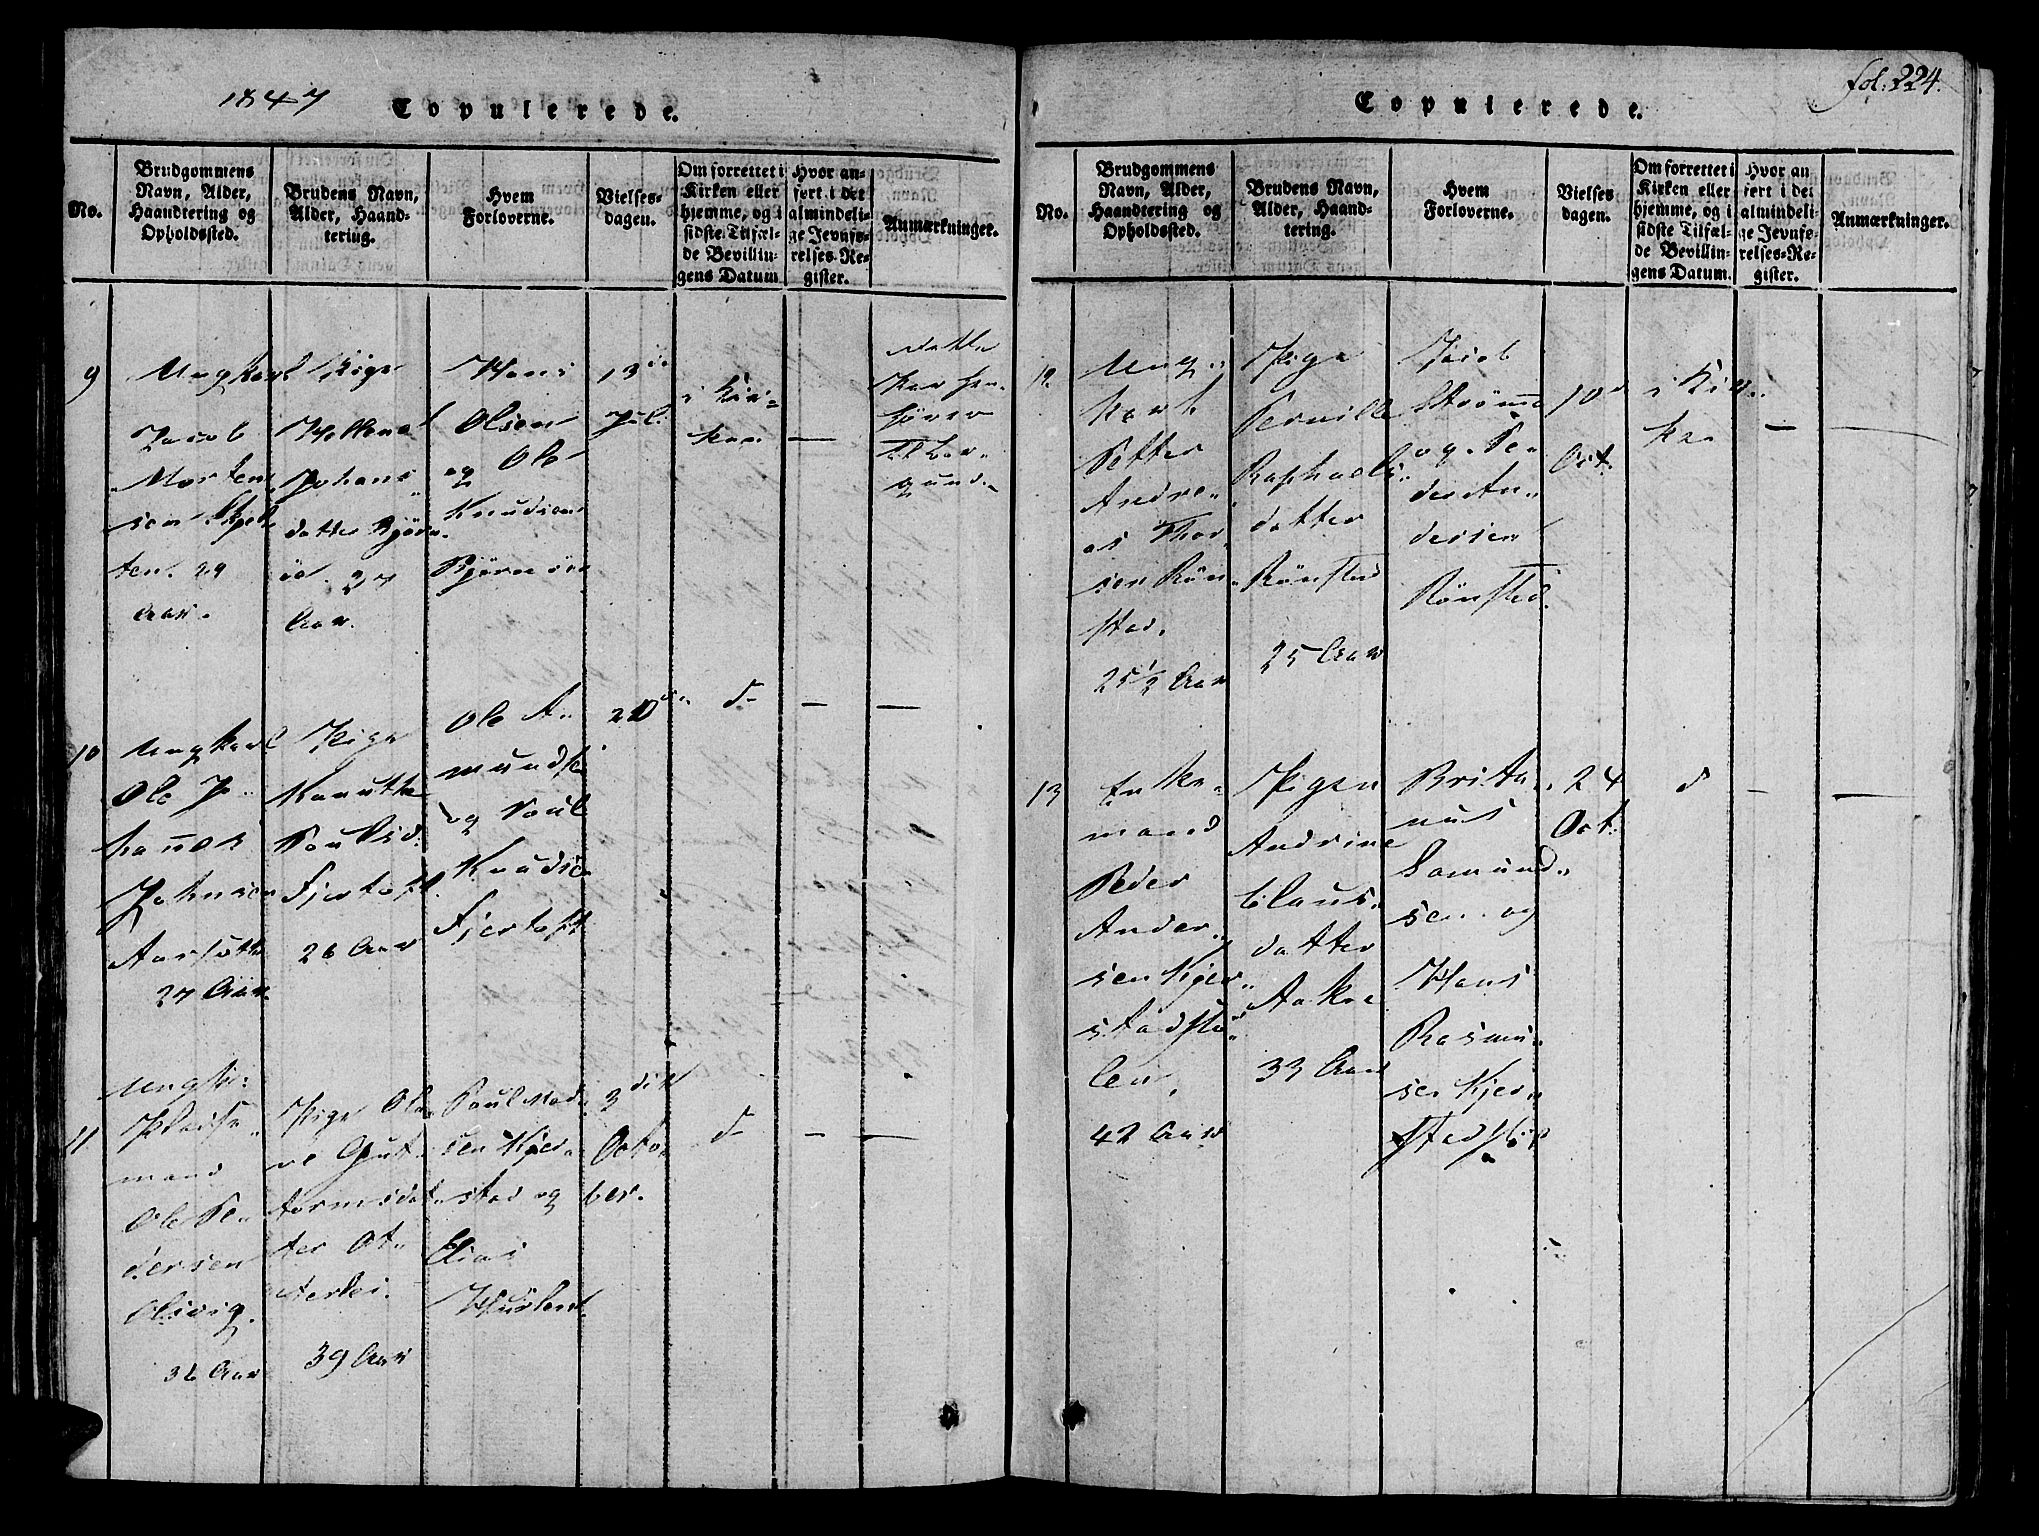 1847
Copulerede.
No.
Brudgommens
Navn, Alder,
Haandtering og
Opholdssted.
Brudens Navn,
Alder, Haand-
tering.
Hvem
Forloverne.
Vielses-
dagen.
Om forrettet i
Kirken eller
hjemme, og i
sidste Tilfæl-
de Bevillin-
gens Datum
Hvor an-
ført i det
almindeli-
ge Jevnfø-
relses-Re-
gister.
Anmærkninger.
9
Ungkarl
Jacob
Morten-
sen
ten. 29
Aar.
Pige
Johans
datter Bjørn-
øe 27
Aar.
Hans
Olsen
og Ole
Knudsen
Bjørnøen
13de
Jul.
i Kir-
ken
—
dette
Par hen-
hører
til Bor-
gund.
10
Ungkarl
Ole J
hannes
Johnsen
27 Aar.
Pige
Kanutha
Poulsd.
Fjertoft
26 Aar
Ole A-
mundse
og Poul
Knudse
Fjertoft
d
—
—
11
Ungk.
Pladse-
mand
Ole Pe-
dersen
Olsvig.
36 Aar
Pige Ola-
ve Gut-
tormsdat-
ter Ot-
terlei.
39 Aar
Poul Mad-
sen Kjer-
stad og
Elias
3die
Octo-
ber.
d
—
—
fol. 224.
Copulerede.
No.
Brudgommens
Navn, Alder,
Haandtering og
Opholdssted.
Brudens Navn,
Alder, Haand-
tering.
Hvem
Forloverne.
Vielses
dagen.
Om forrettet i
Kirken eller
hjemme, og i
sidste Tilfæl-
de Bevillin-
gens Datum.
Hvor an
ført i det
almindeli-
ge Jevnfø-
relses-Re-
gister.
Anmærkninger.
12.
Ung-
karl
Petter
Andre-
as Thor-
sen Røn-
stad.
25 1/2 Aar
Pige
Pernille
Raphaels-
datter
Rønsted
25 Aar
Jacob
Strømme
og Pe-
der An-
dersen
Rønsted.
10d
Oct.
i Kir-
ke
—
—
13
Enke-
mand
Peder
Ander-
sen Kjer-
stadstø-
len,
42 Aar
Pigen
Andrine
Claus-
datter
Aakre
33 Aar
Brita-
nus
Samund-
sen og
Hans
Rasmu-
sen Kjer-
24
Oct.
d
—
—